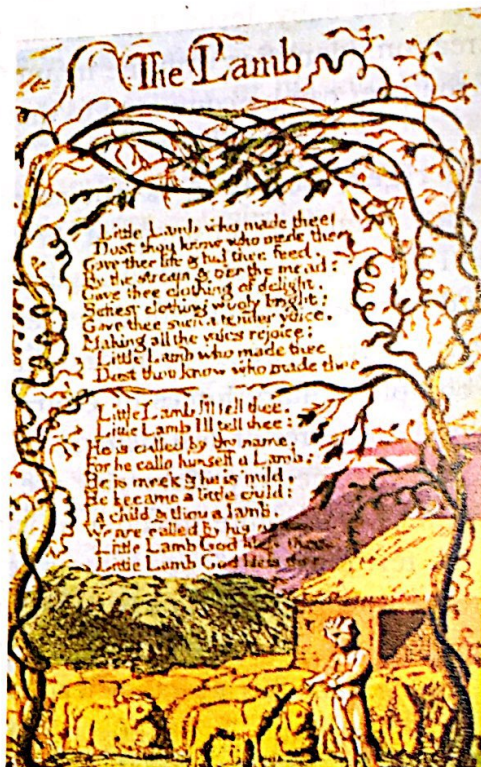 The Lamb
Little Lamb who made thee
Dost thou know who made thee
Gave thee life & bid thee feed.
By the stream & o'er the mead;
Gave thee clothing of delight.
Softest clothing wooly bright;
Gave thee such a tender voice.
Making all the vales rejoice:
Little Lamb who made thee
Dost thou know who made thee
Little Lamb I'll tell thee.
Little Lamb I'll tell thee:
He is called by thy name.
For he calls himself a Lamb:
He is meek & he is mild.
He became a little child:
I a child & thou a lamb.
We are called by his
Little Lamb God bless thee.
Little Lamb God bless thee.